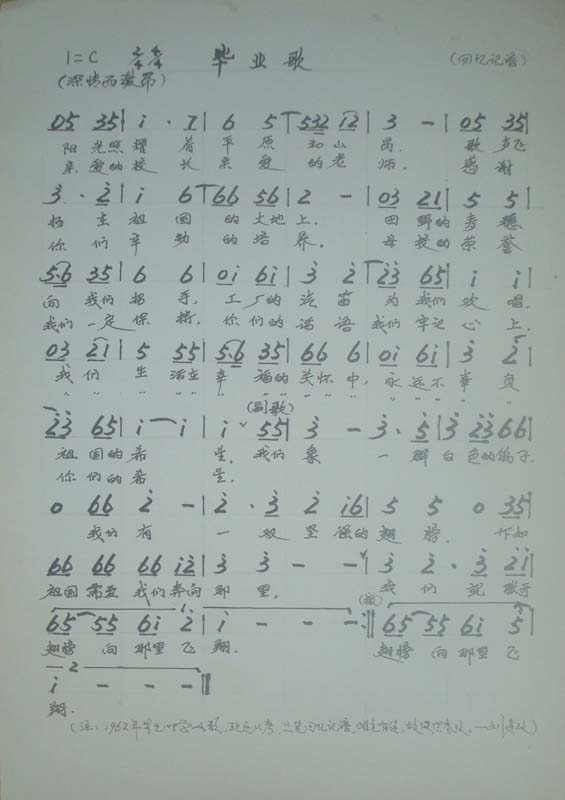 1=C 2/4 4/4 毕业歌 (回忆记谱)
(深情而激昂)
05 35 | i · 7 | 6 5 | 532 12 | 3 - | 05 35 |
阳光照耀着平原和山岗. 歌声飞
亲爱的校长亲爱的老师. 感谢
3 · 2 | i 6 | 66 56 | 2 - | 03 21 | 5 5 |
扬在祖国的大地上. 田野的麦穗
你们辛勤的培养. 母校的荣誉
5·6 35 | 6 6 | 0i 6i | 3 2 | 23 65 | i i |
向我们招手, 工厂的汽笛为我们欢唱.
我们一定保持. 你们的话语我们牢记心上.
03 21 | 5 55 | 5·6 35 | 66 6 | 0i 6i | 3 2 |
我们生活在幸福的关怀中, 永远不辜负
(副歌)
23 65 | i i | i 55 | 3 - | 3 · 5 | 3 23 66 |
祖国的希望. 我们象一群白色的鸽子.
你们的希望.
0 66 2 - | 2 · 3 2 i6 | 5 5 0 35 |
我们有一双坚强的翅膀. 
66 66 66 i2 | 3 3 - - | 3 2 · 3 2i |
祖国需要我们奔向那里, 我们就展开
1. (激)
65 55 6i 2 | i - - - :|| 65 55 6i 5 |
翅膀向那里飞翔. 翅膀向那里飞
2
i - - - ||
翔.
(注: 1962年毕业时学唱此歌, 回忆记谱,